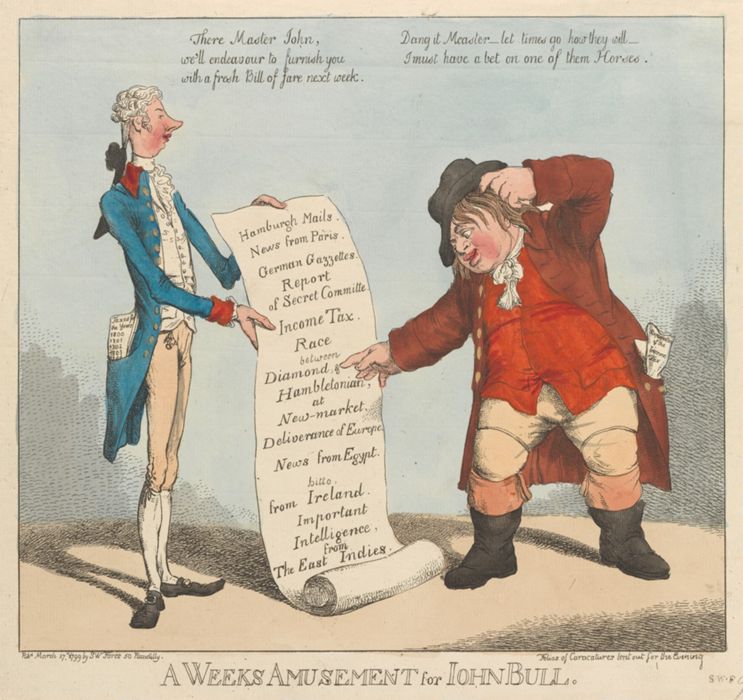 There Master John,
we'll endeavour to furnish you
with a fresh Bill of fare next week.
Dang it Measter_let times go how they will_
I must have a bet on one of them Horses.
Hamburgh Mails.
News from Paris.
German Gazzettes.
Report
of Secret Committe
Income Tax.
Race
between
Diamond, &
Hambletonian,
at
New-market.
Deliverance of Europe
News from Egypt.
ditto
from Ireland.
Important
Intelligence,
from
The East Indies.
Taxes for
the Years
1800
1801
1802
1803
of the
Income
Tax
Pub. March 17, 1799 by S W Fores 50 Piccadilly.
Folios of Caracatures lent out for the Evening
A WEEKS AMUSEMENT for IOHN BULL.